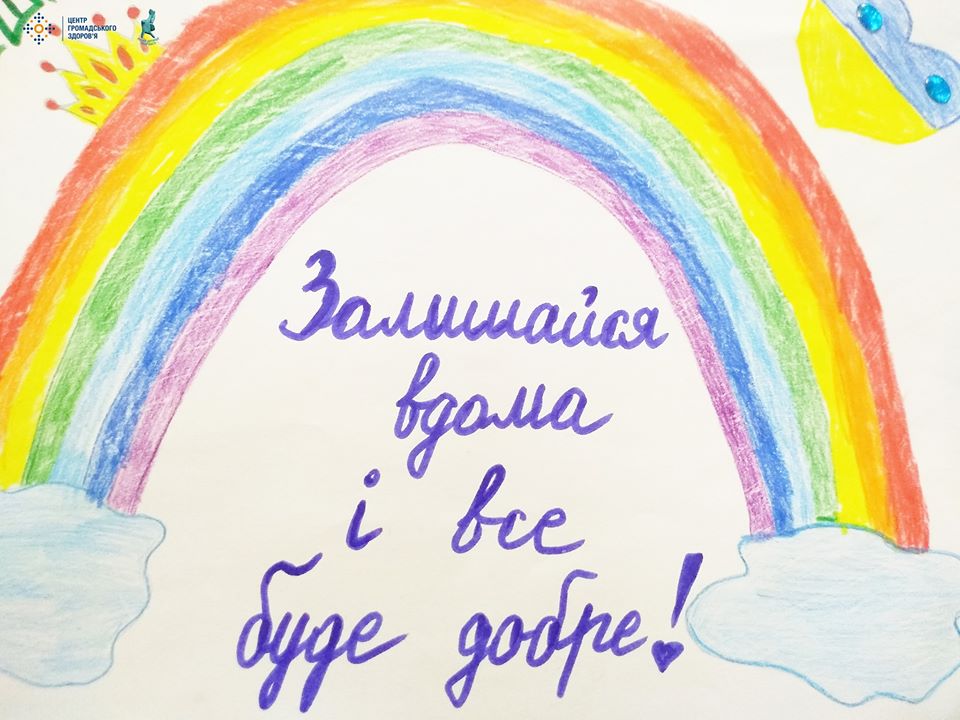 ЦЕНТР
ГРОМАДСЬКОГО
ЗДОРОВ'Я
Залишайся
вдома
і все
буде добре!